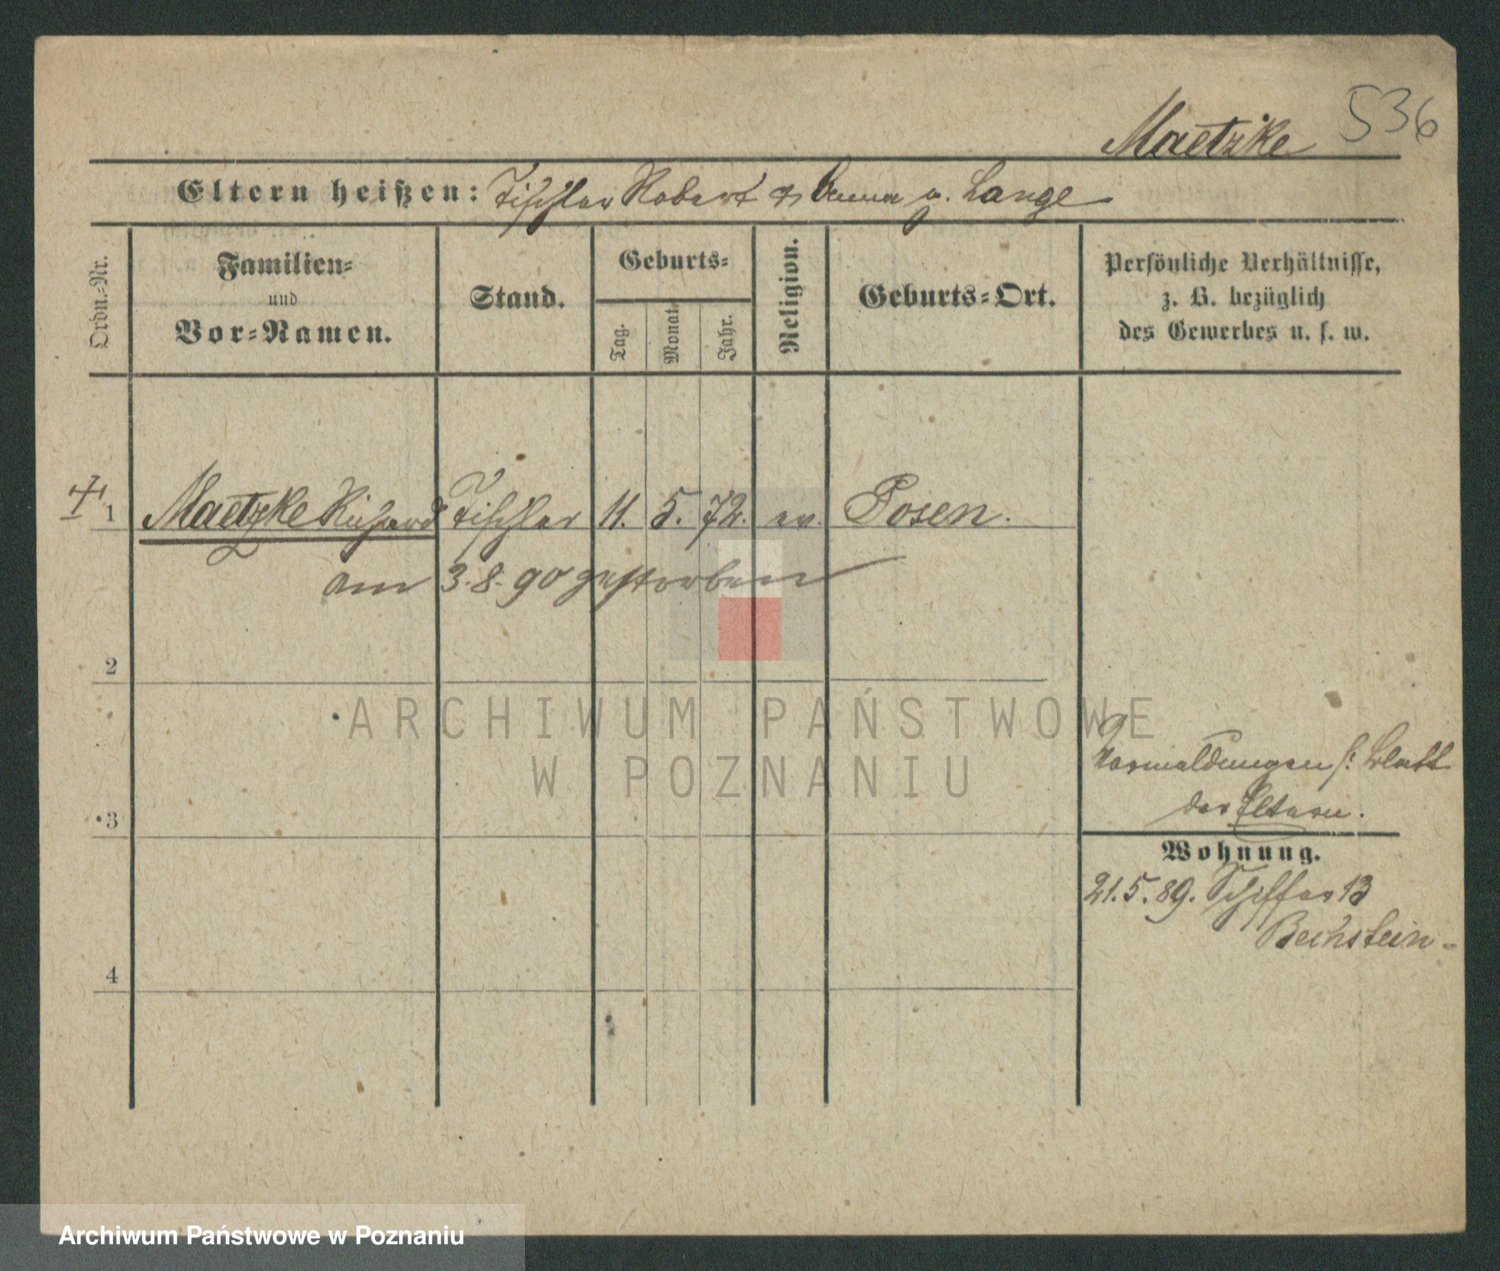 536
Maetzke
Eltern heißen: Tischler Robert & Anna g. Lange
Ordn.-Nr.
Familien-
und
Vor-Namen.
Stand.
Geburts-
Tag.
Monat.
Jahr.
Religion.
Geburts-Ort.
Persönliche Verhältnisse,
z. B. bezüglich
des Gewerbes u. s. w.
1 Maetzke Richard Tischler 11. 5. 72. ev. Posen.
am 3.8.90 gestorben
2
ARCHIWUM PAŃSTWOWE
W POZNANIU
Vormeldungen s: Blatt
der Eltern.
3
Wohnung.
21.5.89. Schiffer 13
Bechstein-
4
Archiwum Państwowe w Poznaniu